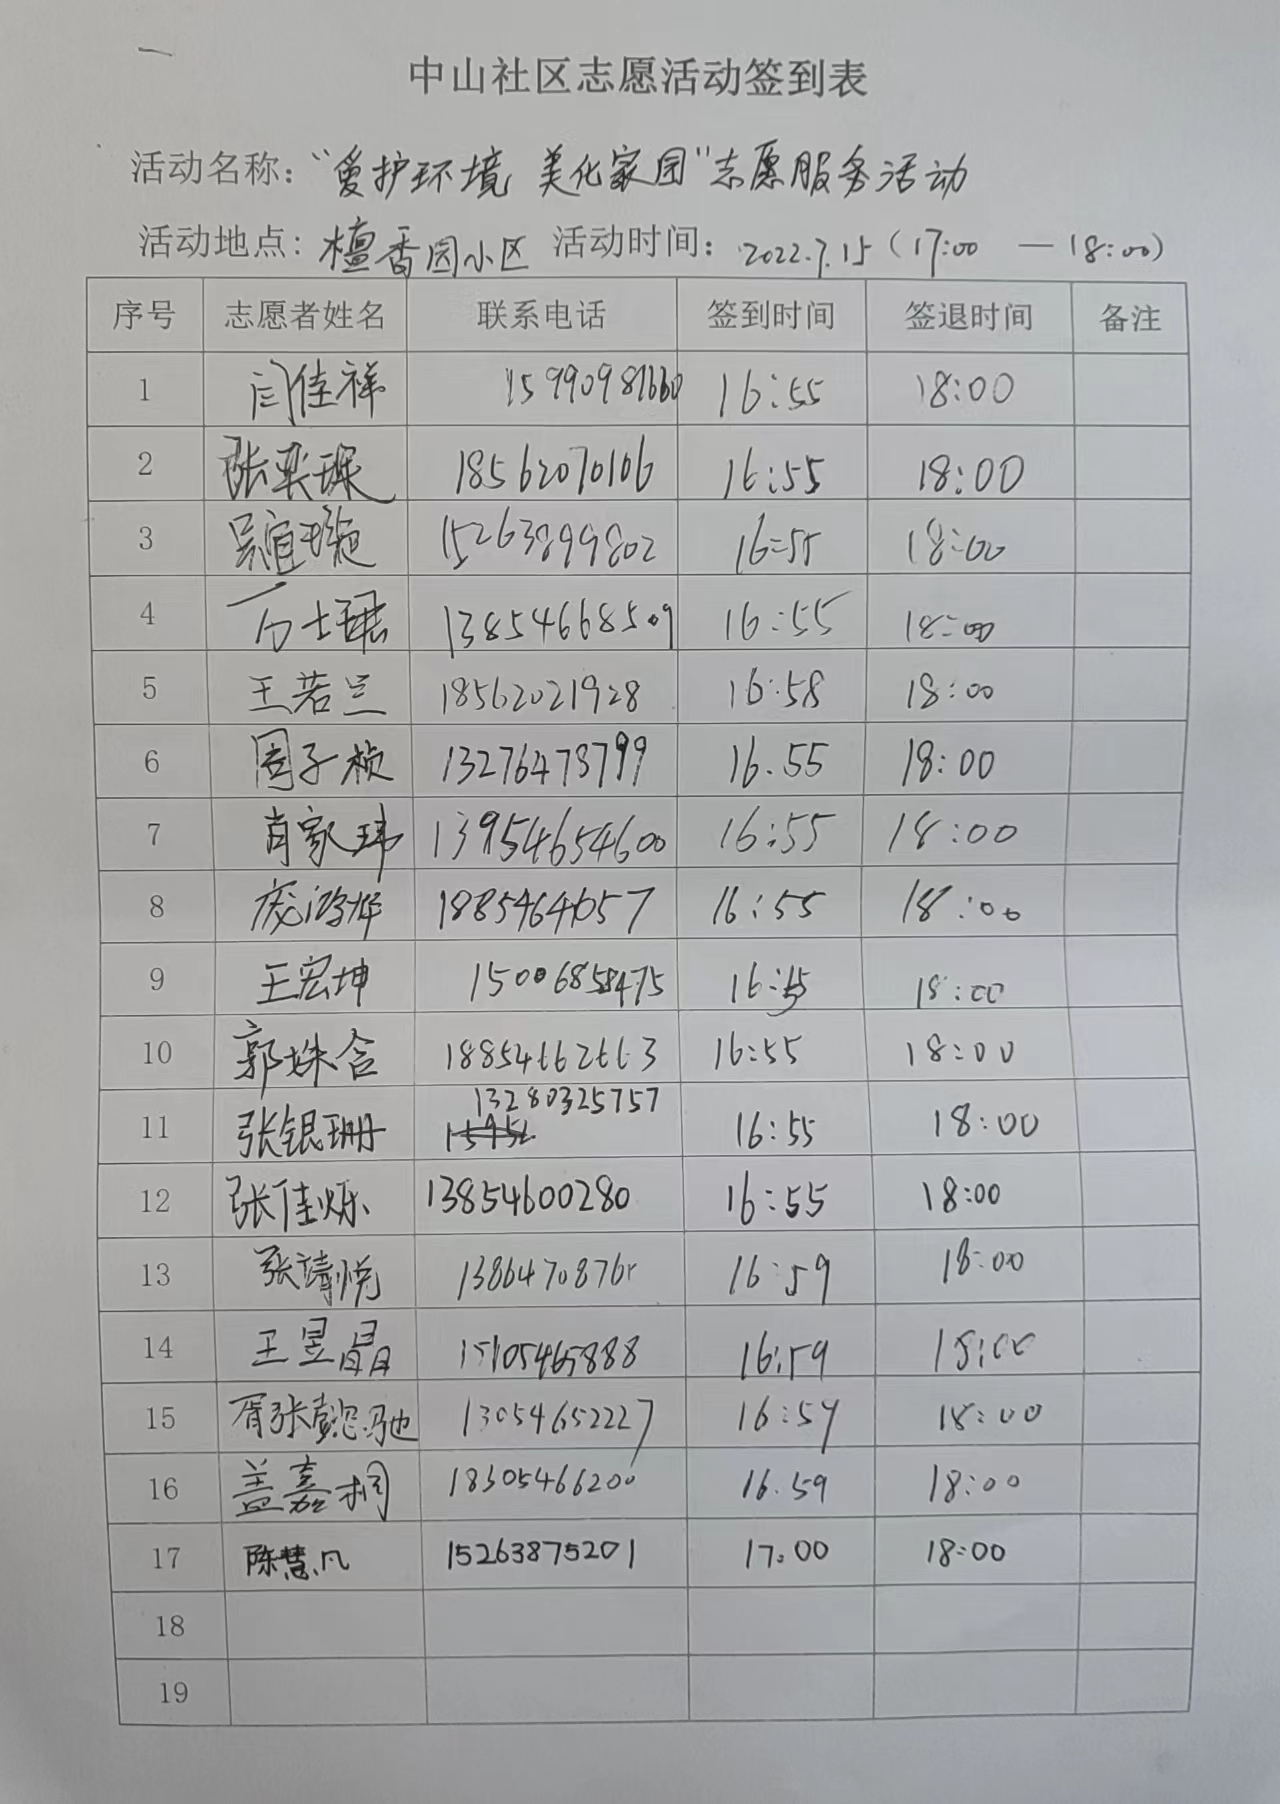 中山社区志愿活动签到表
活动名称：“爱护环境 美化家园”志愿服务活动
活动地点：檀香园小区 活动时间：2022.7.15（17:00 —18:00）
序号 志愿者姓名 联系电话 签到时间 签退时间 备注
1 闫佳祥 16:55 18:00
2 张奕琛 18562070106 16:55 18:00
3 吴宜璇 15263899802 16:55 18:00
4 13854668509 16:55 18:00
5 王若兰 18562021928 16:58 18:00
6 周子桢 13276478799 16.55 18:00
7 肖家玮 13954654600 16:55 18:00
8 庞鸿烨 16:55 18:00
9 王宏坤 15006858475 16:55 18:00
10 郭姝含 18854662663 16:55 18:00
11 张银珊 13280325757 16:55 18:00
12 张佳烁 13854600280 16:55 18:00
13 张靖悦 16:59 18:00
14 王昱晶 15105465888 16:59 18:00
15 胥张懿驰 13054652227 16:59 18:00
16 盖嘉桐 18305466200 16.59 18:00
17 陈慧凡 15263875201 17:00 18:00
18
19